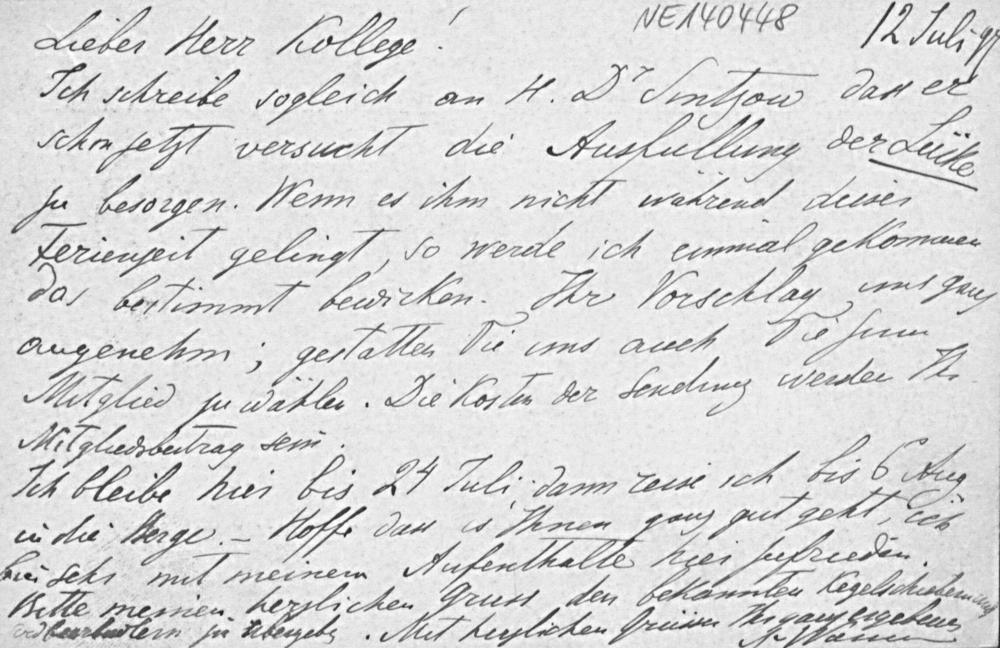 NE140448
12 Juli 97
Lieber Herr Kollege!
Ich schreibe sogleich an H. Dr Sintzow dass er
schon jetzt versucht die Ausfüllung der Lücke
zu besorgen. Wenn es ihm nicht während dieser
Ferienzeit gelingt, so werde ich einmal gekommen
das bestimmt bewirken. Ihr Vorschlag uns ganz
angenehm; gestatten Sie uns auch Sie zum
Mitglied zu wählen. Die Kosten der Sendung werden Ihr
Mitgliedsbeitrag sein.
Ich bleibe hier bis 24 Juli dann reise ich bis 6 Aug
in die Berge. – Hoffe dass es Ihnen ganz gut geht, ich
bin sehr mit meinem Aufenthalte hier zufrieden.
Bitte meinen herzlichen Gruss den bekannten
zu übergeben. Mit herzlichen Grüssen Ihr ganz ergebener